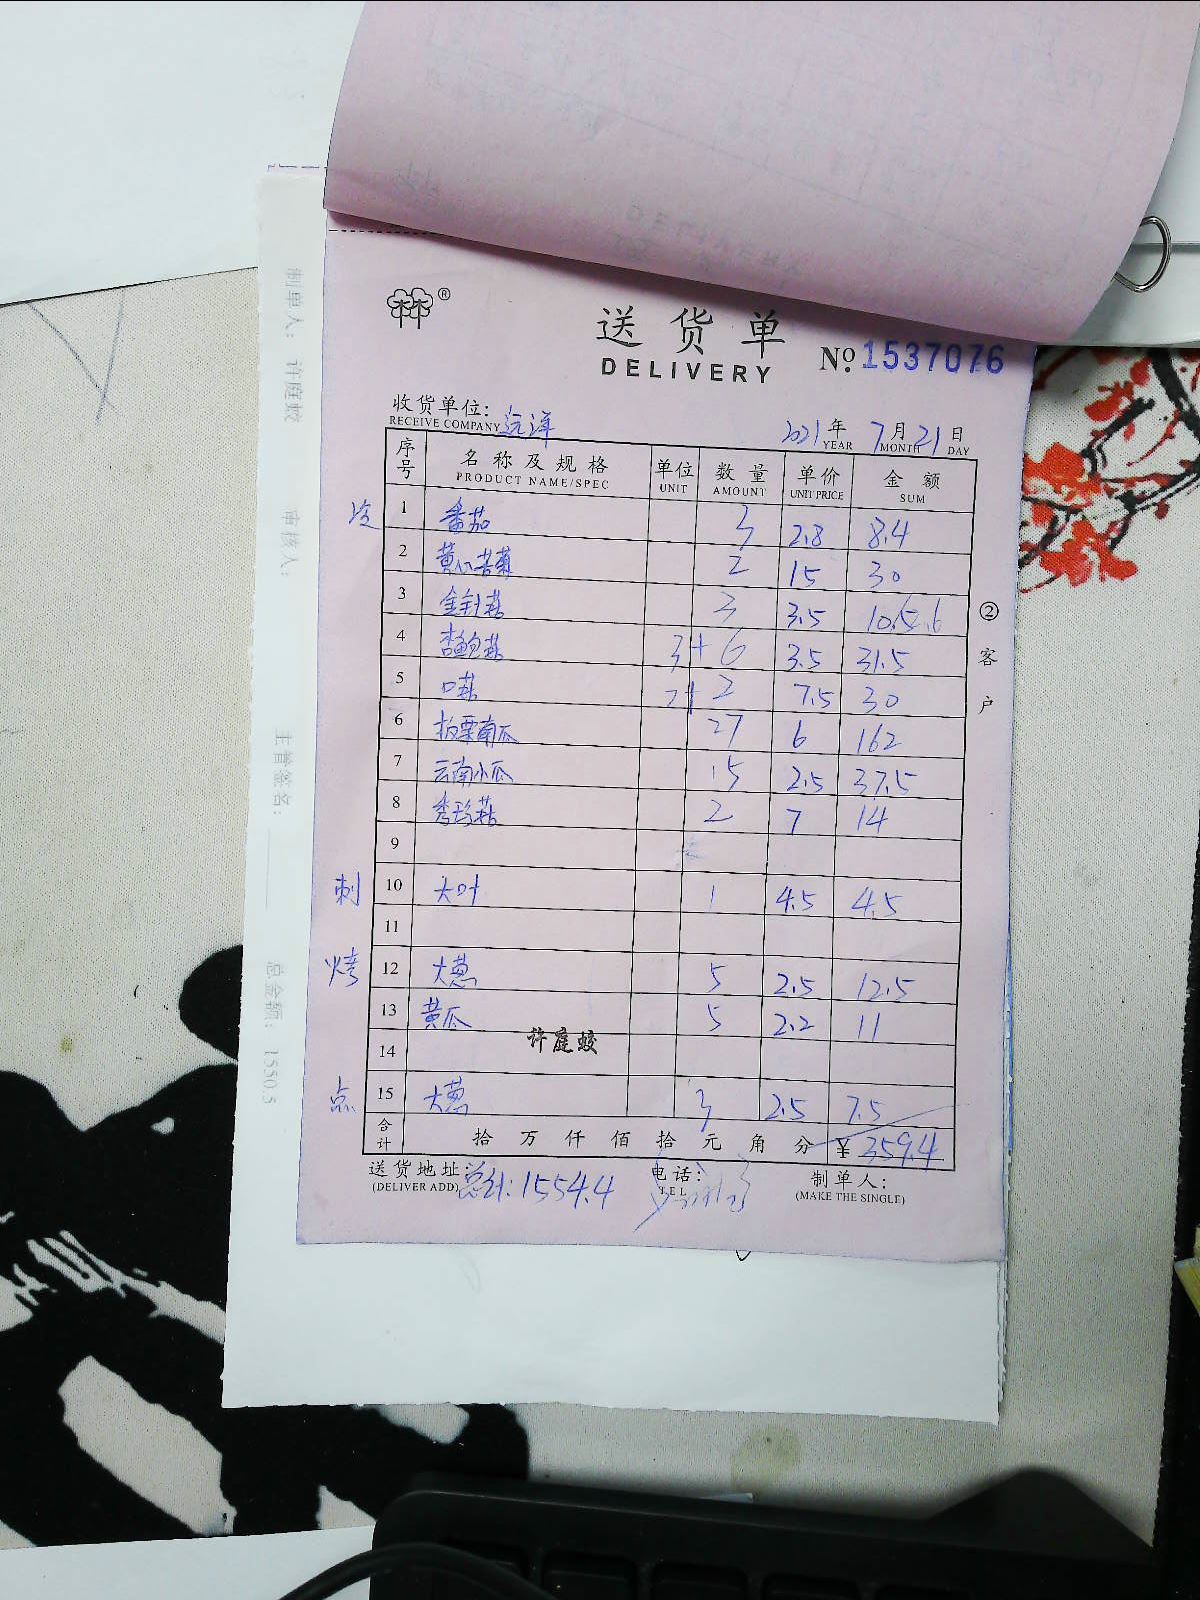 送货单
DELIVERY
№ 1537076
收货单位: 远洋
RECEIVE COMPANY
2021年 7月 21日
YEAR MONTH DAY
序号 名称及规格 单位 数量 单价 金额
PRODUCT NAME/SPEC UNIT AMOUNT UNIT PRICE SUM
冷 1 番茄 3 2.8 8.4
2 黄心苦菊 2 15 30
3 金针菇 3 3.5 10.5
4 杏鲍菇 3+6 3.5 31.5
5 口菇 2+2 7.5 30
6 板栗南瓜 27 6 162
7 云南小瓜 15 2.5 37.5
8 秀珍菇 2 7 14
9
刺 10 大叶 1 4.5 4.5
11
烤 12 大葱 5 2.5 12.5
13 黄瓜 5 2.2 11
许庭蛟
14
点 15 大葱 3 2.5 7.5
合计 拾万仟佰拾元角分 ¥ 359.4
送货地址: 总计: 1554.4 电话: 制单人:
(DELIVER ADD) TEL (MAKE THE SINGLE)
②客户
制单人: 许庭蛟
审核人:
主管签名:
总金额: 1550.5